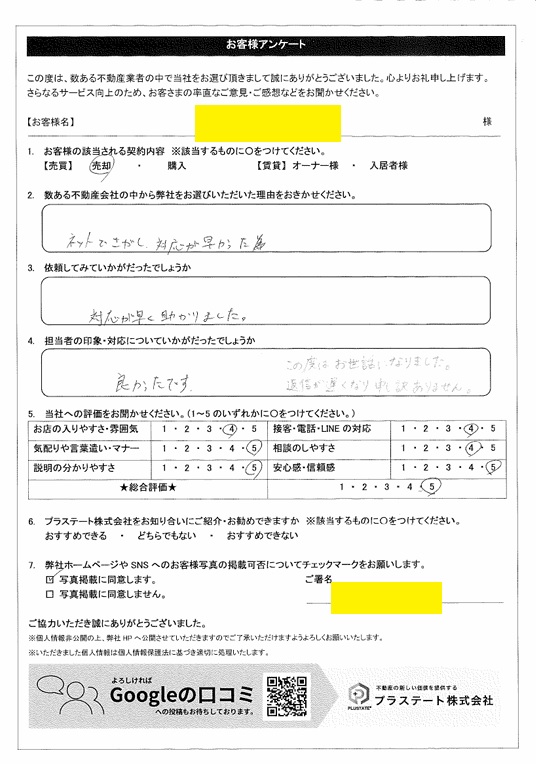 お客様アンケート
この度は、数ある不動産業者の中で当社をお選び頂きまして誠にありがとうございました。心よりお礼申し上げます。
さらなるサービス向上のため、お客さまの率直なご意見・ご感想などをお聞かせください。
【お客様名】 様
1. お客様の該当される契約内容 ※該当するものに○をつけてください。
【売買】 売却 ・ 購入 【賃貸】オーナー様 ・ 入居者様
2. 数ある不動産会社の中から弊社をお選びいただいた理由をおきかせください。
ネットでさがし、対応が早かった為
3. 依頼してみていかがだったでしょうか
対応が早く助かりました。
4. 担当者の印象・対応についていかがだったでしょうか
この度はお世話になりました。
良かったです。 返信が遅くなり申し訳ありません。
5. 当社への評価をお聞かせください。(1~5のいずれかに○をつけてください。)
お店の入りやすさ・雰囲気 1・2・3・4・5 接客・電話・LINEの対応 1・2・3・4・5
気配りや言葉遣い・マナー 1・2・3・4・5 相談のしやすさ 1・2・3・4・5
説明の分かりやすさ 1・2・3・4・5 安心感・信頼感 1・2・3・4・5
★総合評価★ 1・2・3・4・5
6. プラステート株式会社をお知り合いにご紹介・お勧めできますか ※該当するものに○をつけてください。
おすすめできる ・ どちらでもない ・ おすすめできない
7. 弊社ホームページやSNSへのお客様写真の掲載可否についてチェックマークをお願いします。
☑ 写真掲載に同意します。 ご署名
□ 写真掲載に同意しません。
ご協力いただき誠にありがとうございました。
※個人情報非公開の上、弊社HPへ公開させていただきますのでご了承いただけますようよろしくお願いいたします。
※いただきました個人情報は個人情報保護法に基づき適切に処理いたします。
よろしければ
Googleの口コミ
への投稿もお待ちしております。
不動産の新しい価値を提供する
プラステート株式会社
PLUSTATE